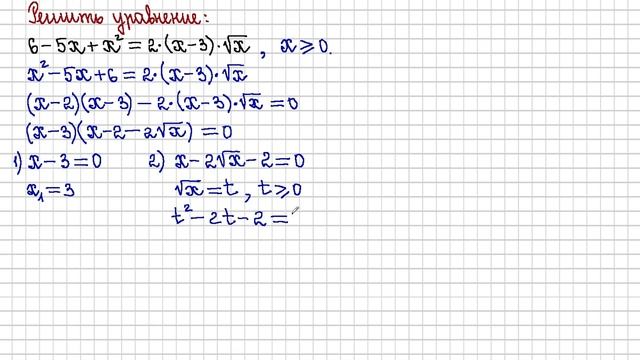 Решить уравнение:
6 - 5x + x² = 2·(x-3)·√x , x ⩾ 0.
x² - 5x + 6 = 2·(x-3)·√x
(x-2)(x-3) - 2·(x-3)·√x = 0
(x-3)(x-2-2√x) = 0
1) x - 3 = 0 2) x - 2√x - 2 = 0
x₁ = 3 √x = t , t ⩾ 0
t² - 2t - 2 =